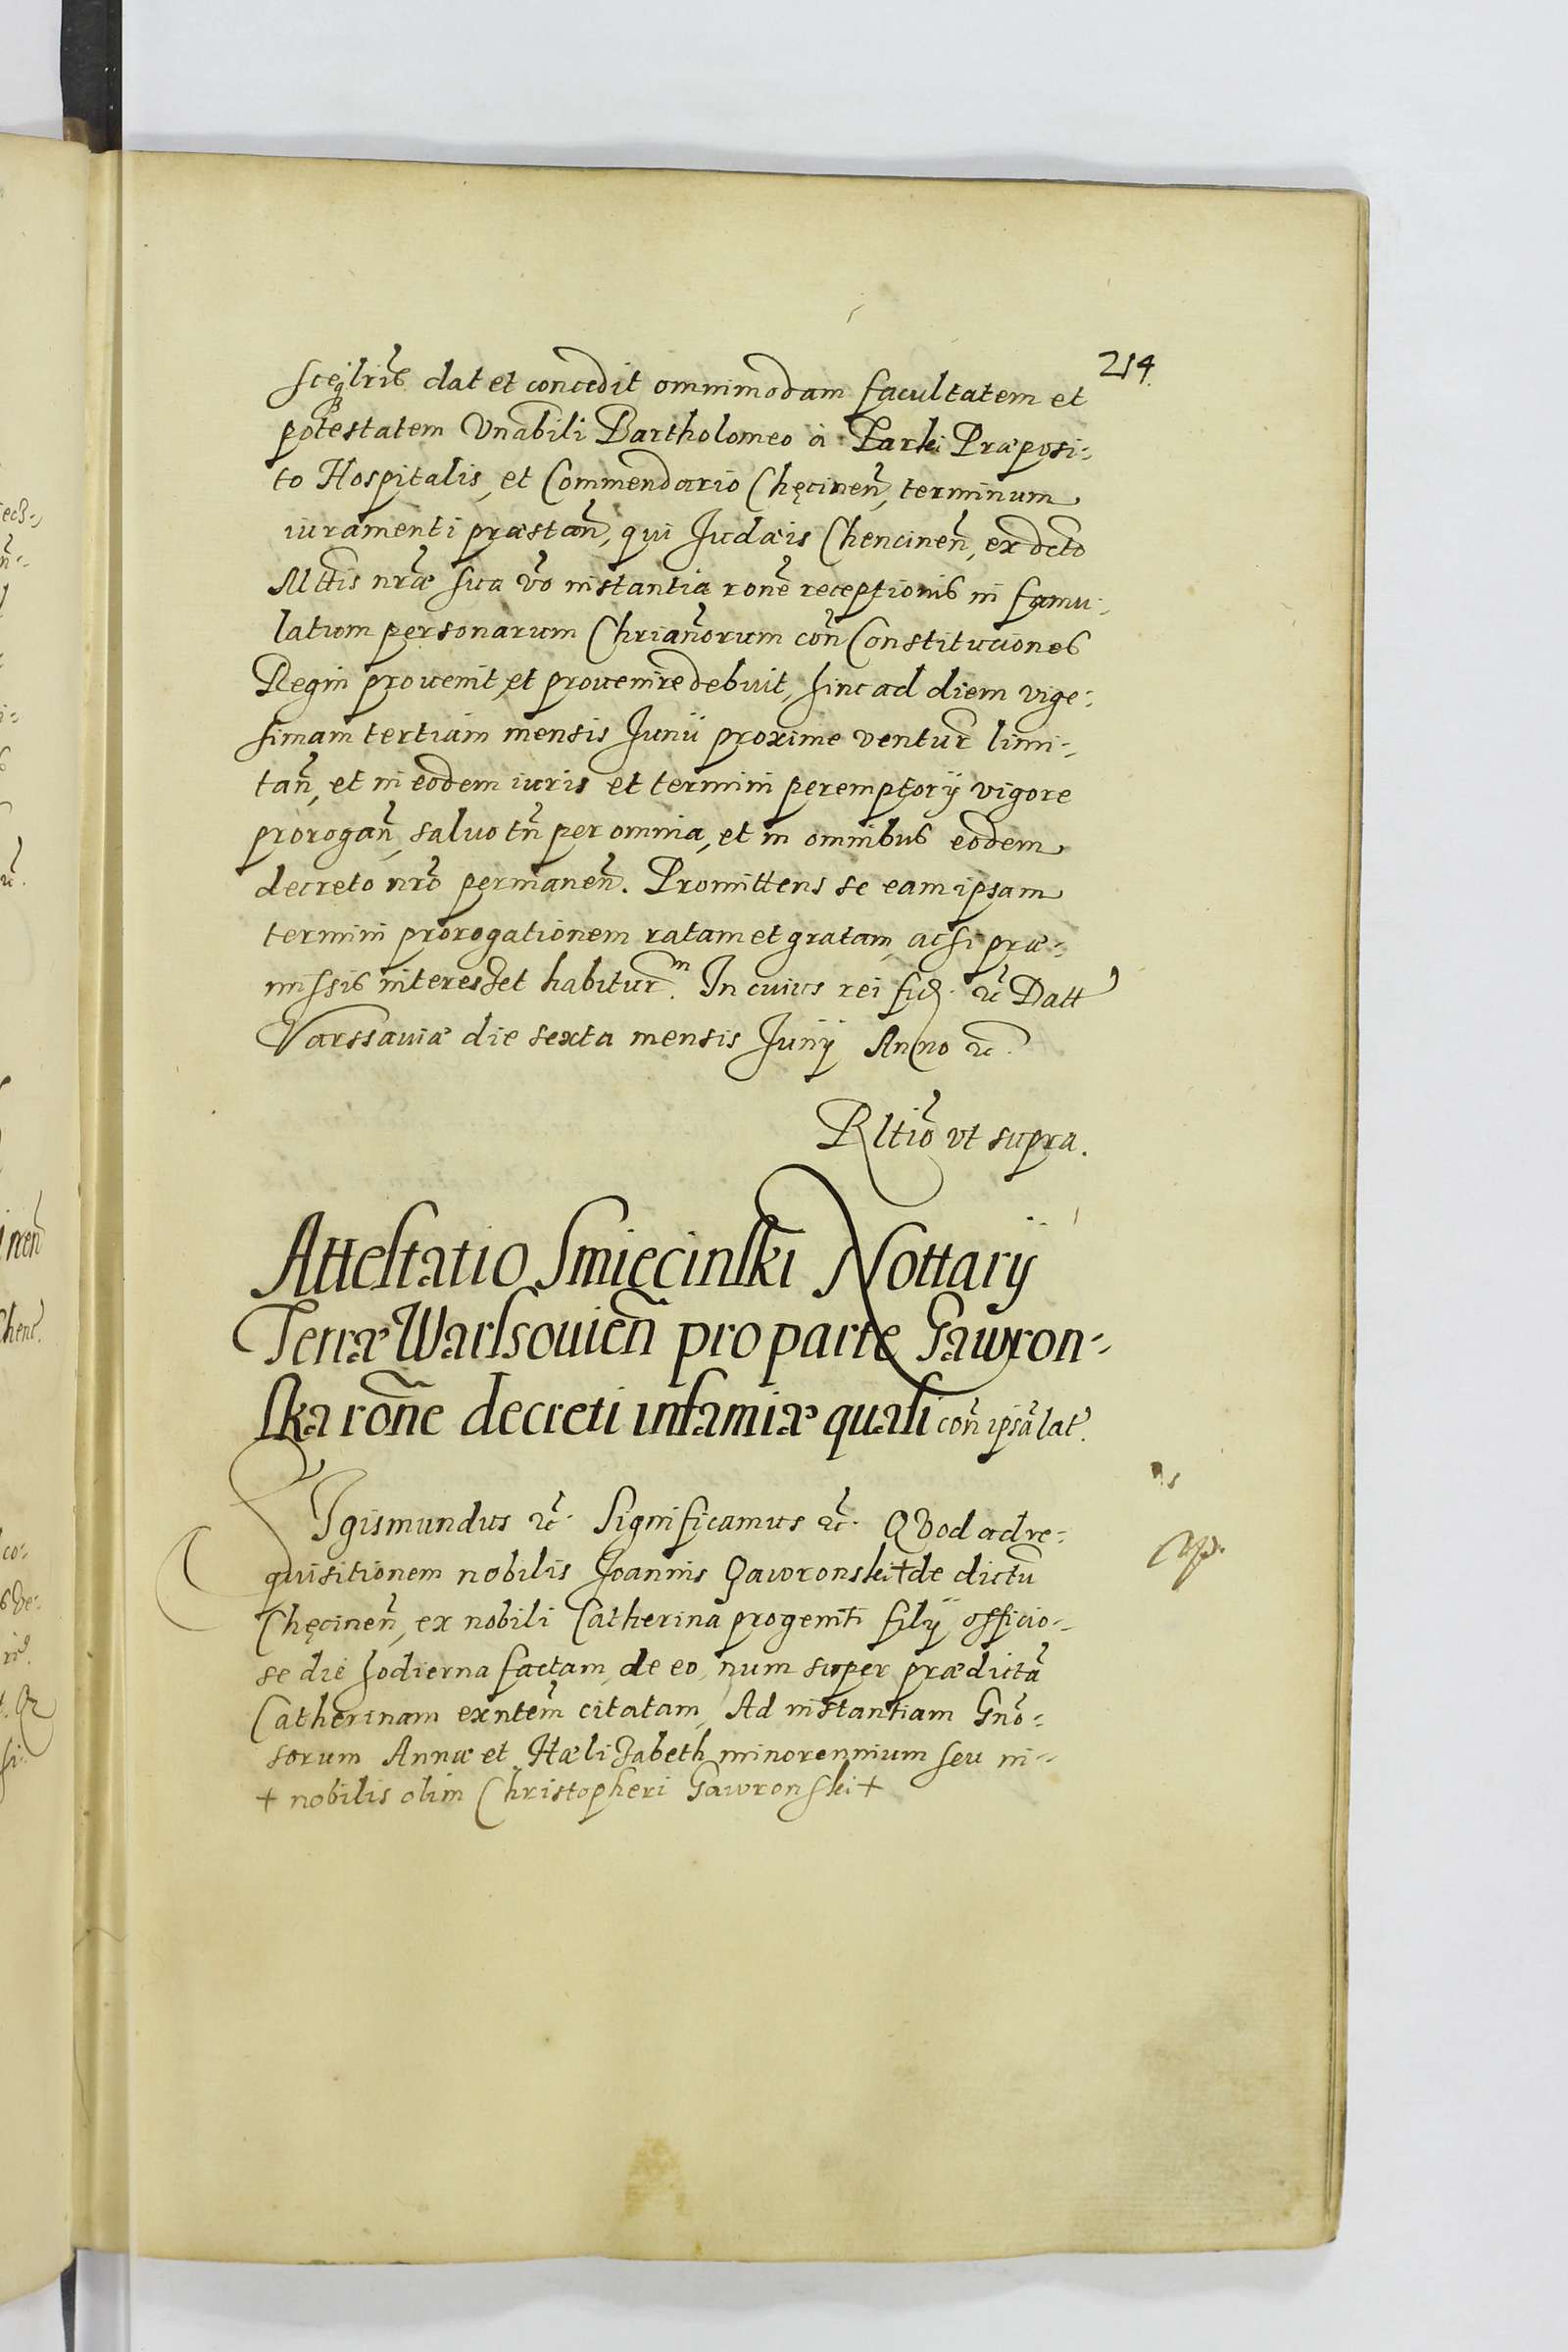 214.
dat et concedit omnimodam facultatem et
potestatem Vnabili Bartholomeo à Parki Præposi-
to Hospitalis, et Commendario Chęcinen̄, terminum
iuramenti præstan̄, qui Judæis Chencinen̄, ex dcto
Mttis nr̄æ sua v̄o instantia ron̄e receptionis in famu-
latum personarum Chrian̄orum con̄ Constituciones
Regni prouenit, et prouenire debuit, hinc ad diem vige-
simam tertiam mensis Junii proxime ventur̄ limi-
tan̄, et in eodem iuris et termini peremptorij vigore
prorogan̄, saluo tn̄ per omnia, et in omnibus eodem
decreto nr̄o permanen̄. Promittens se eam ipsam
termini prorogationem ratam et gratam, acsi præ-
missis interesset habitur̄ᵐ. In cuius rei fid. &c̄ Datt
Varssauiæ die sexta mensis Junij Anno &c.
Rltio̅ vt supra.
Attestatio Smięcinski Nottarij
Terræ Warssouien̄ pro parte Gawron-
ska ron̄e decreti infamiæ quasi con̄ ipsā lat.
SIgismundus &c̄. Significamus &c̄. QVod ad re-
quisitionem nobilis Joannis Gawronski + de dictū
Chęcinen̄, ex nobili Catherina progeniti filij officio-
se die hodierna factam, de eo, num super prædictā
Catherinam exntem̄ citatam, Ad instantiam Gn̄o-
sorum Annæ et Hælizabeth minorennium seu in-
+ nobilis olim Christopheri Gawronski +